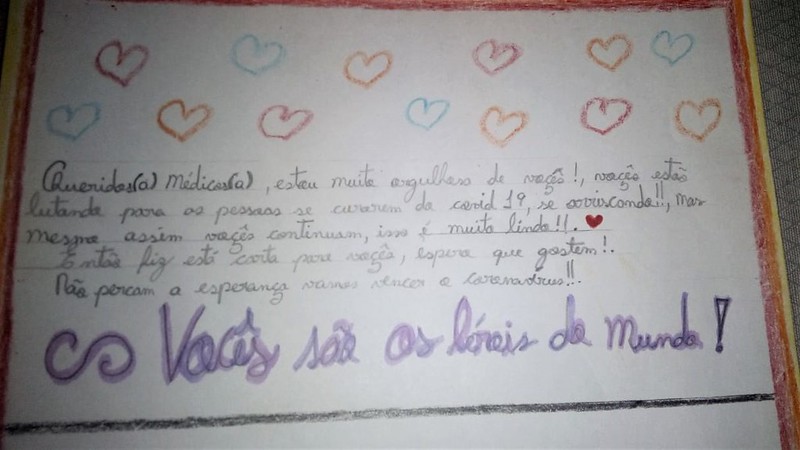 Queridos(a) Médicos(a), estou muito orgulhoso de vocês!, voçês estão
lutando para as pessoas se curarem da covid 19, se arriscando!!, mas
mesmo assim voçês continuam, isso é muito lindo!!.
Então fiz está carta para voçês, espero que gostem!.
Não percam a esperança vamos vencer o coronavírus!!.
Vocês são os heróis do mundo!